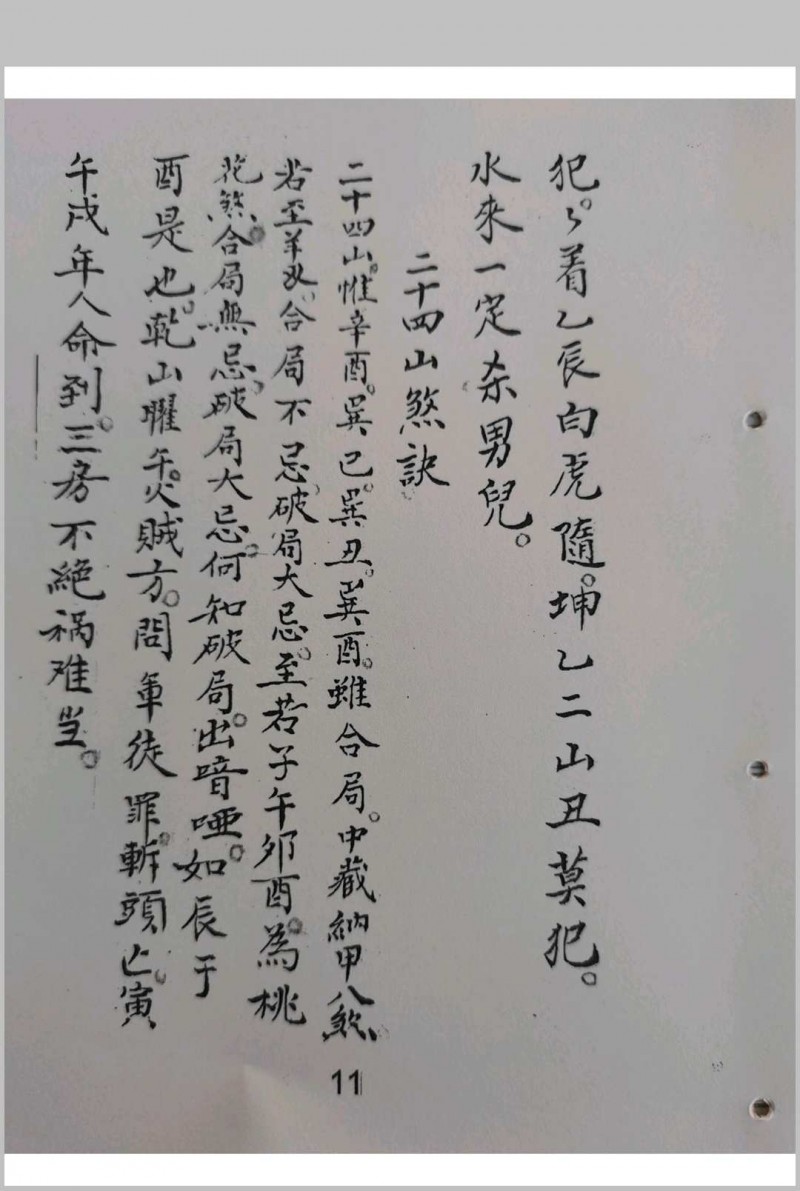 犯。々着乙辰白虎隨。坤乙二山丑莫犯。
水來一定杀男兒。
二十四山煞訣
二十四山。惟辛酉。巽巳。巽丑。巽酉。雖合局。中藏納甲八煞
若至羊刃。合局不忌。破局大忌。至若子午卯酉。為桃
花煞。合局無忌。破局大忌。何知破局。出喑啞。如辰于
酉是也。乾山曜午。火賊方。問軍徒罪。斬頭亡。寅
午戌年人命到。三房不絕禍难当。
11